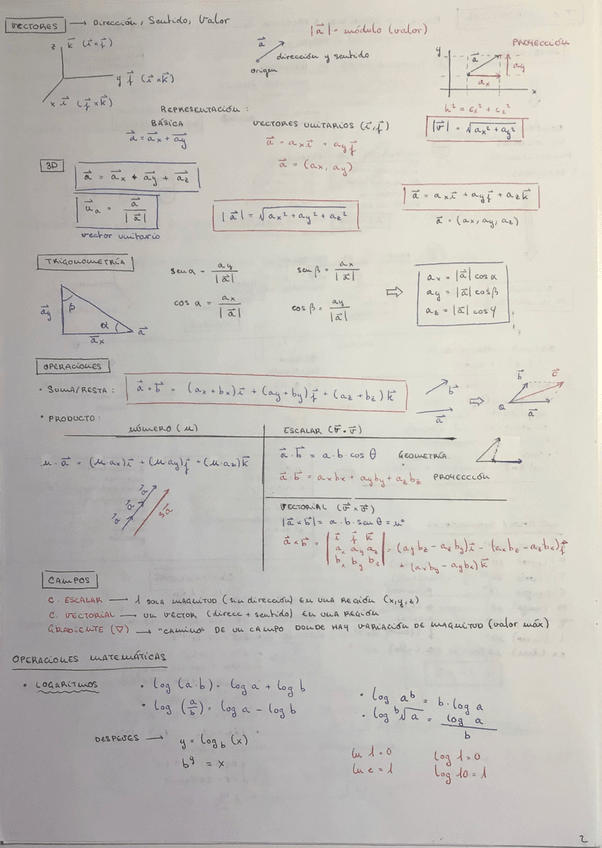 VECTORES → Dirección, Sentido, Valor
|a⃗| = módulo (valor)
z k⃗ (i⃗×j⃗)
y j⃗ (i⃗×k⃗)
x i⃗ (j⃗×k⃗)
a⃗
dirección y sentido
origen
PROYECCIÓN
y a⃗ a⃗y
a⃗x x
REPRESENTACIÓN:
BÁSICA
a⃗ = a⃗x + a⃗y
VECTORES UNITARIOS (i⃗, j⃗)
a⃗ = axi⃗ + ayj⃗
a⃗ = (ax, ay)
h² = c₁² + c₂²
|v⃗| = √ax² + ay²
3D
a⃗ = a⃗x + a⃗y + a⃗z
u⃗a = a⃗ / |a⃗|
vector unitario
|a⃗| = √ax² + ay² + az²
a⃗ = axi⃗ + ayj⃗ + azk⃗
a⃗ = (ax, ay, az)
TRIGONOMETRÍA
a⃗y β α a⃗
a⃗x
sen α = ay / |a⃗|
sen β = ax / |a⃗|
cos α = ax / |a⃗|
cos β = ay / |a⃗|
⇨
ax = |a⃗| cos α
ay = |a⃗| cos β
az = |a⃗| cos γ
OPERACIONES
• SUMA/RESTA: a⃗ + b⃗ = (ax + bx)i⃗ + (ay + by)j⃗ + (az + bz)k⃗
b⃗
a⃗
⇨
b⃗ c⃗
O a⃗
• PRODUCTO:
NÚMERO (μ)
μ · a⃗ = (μ·ax)i⃗ + (μ·ay)j⃗ + (μ·az)k⃗
a⃗ a⃗ a⃗ 3a⃗
ESCALAR (v⃗ · v⃗)
a⃗ · b⃗ = a · b · cos θ GEOMETRÍA
a⃗ · b⃗ = axbx + ayby + azbz PROYECCIÓN
VECTORIAL (v⃗ × v⃗)
|a⃗ × b⃗| = a · b · sen θ = u²
a⃗ × b⃗ = | i⃗ j⃗ k⃗ | = (aybz − azby)i⃗ − (axbz − azbx)j⃗
| ax ay az | + (axby − aybx)k⃗
| bx by bz |
CAMPOS
C. ESCALAR → 1 SOLA MAGNITUD (sin dirección) EN UNA REGIÓN (x,y,z)
C. VECTORIAL → UN VECTOR (direcc + sentido) EN UNA REGIÓN
GRADIENTE (∇) → "CAMINO" DE UN CAMPO DONDE HAY VARIACIÓN DE MAGNITUD (valor máx)
OPERACIONES MATEMÁTICAS
• LOGARITMOS
• log (a·b) = log a + log b
• log (a/b) = log a − log b
• log aᵇ = b · log a
• log ᵇ√a = log a / b
DESPEJES → y = log_b (x)
bʸ = x
ln 1 = 0
ln e = 1
log 1 = 0
log 10 = 1
2